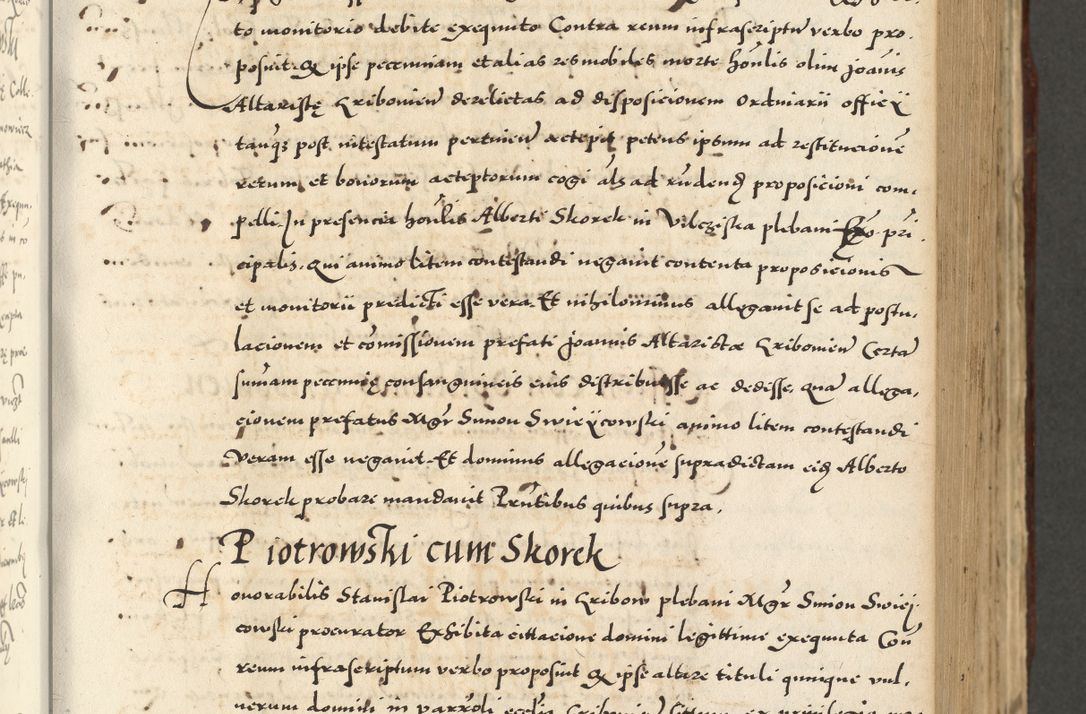 to monitorio debite exequuto Contra reum infrascriptū verbo pro-
posuit Q ipse pecuniam et alias res mobiles morte hoūlis olim joānis
Altaristę Gribovien̄ derelictas ad disposicionem Ordinarii officii
tanq̄ post intestatum pertinen̄ accepit petens ipsum ad restitucionē
rerum et bonorum acceptorum cogi al̄s ad r̄ndend proposicioni com-
pelli. In presencia hon̄lis Alberti Skorek in plebani pri
cipalis. Qui animo litem contestandi negavit contenta proposicionis
et monitorii predicti esse vera. Et nihilominus allegavit se ad postu-
lacionem et cōmissionem prefati Joannis Altaristæ Gribovien̄ Certā
sum̄am pecunię consanguineis eius distribuisse ac dedisse, quā allega-
cionem prefatus Mḡr Simon Swieycowski animo litem contestandi
Veram esse negavit. Et dominus allegacionē supradictam eid Alberto
Skorek probare mandavit Prn̄tibus quibus supra.
Piotrowski cum Skorek
Honorabilis Stanislai Piotrowski in Gribow plebani Mḡr Simon Swiej-
cowski procurator Exhibita cittacione domini legittime exequuta Con
reum infrascriptum verbo proposuit Q ipse altare tituli quinque vul-
nerum domini in parrōli ecclīa